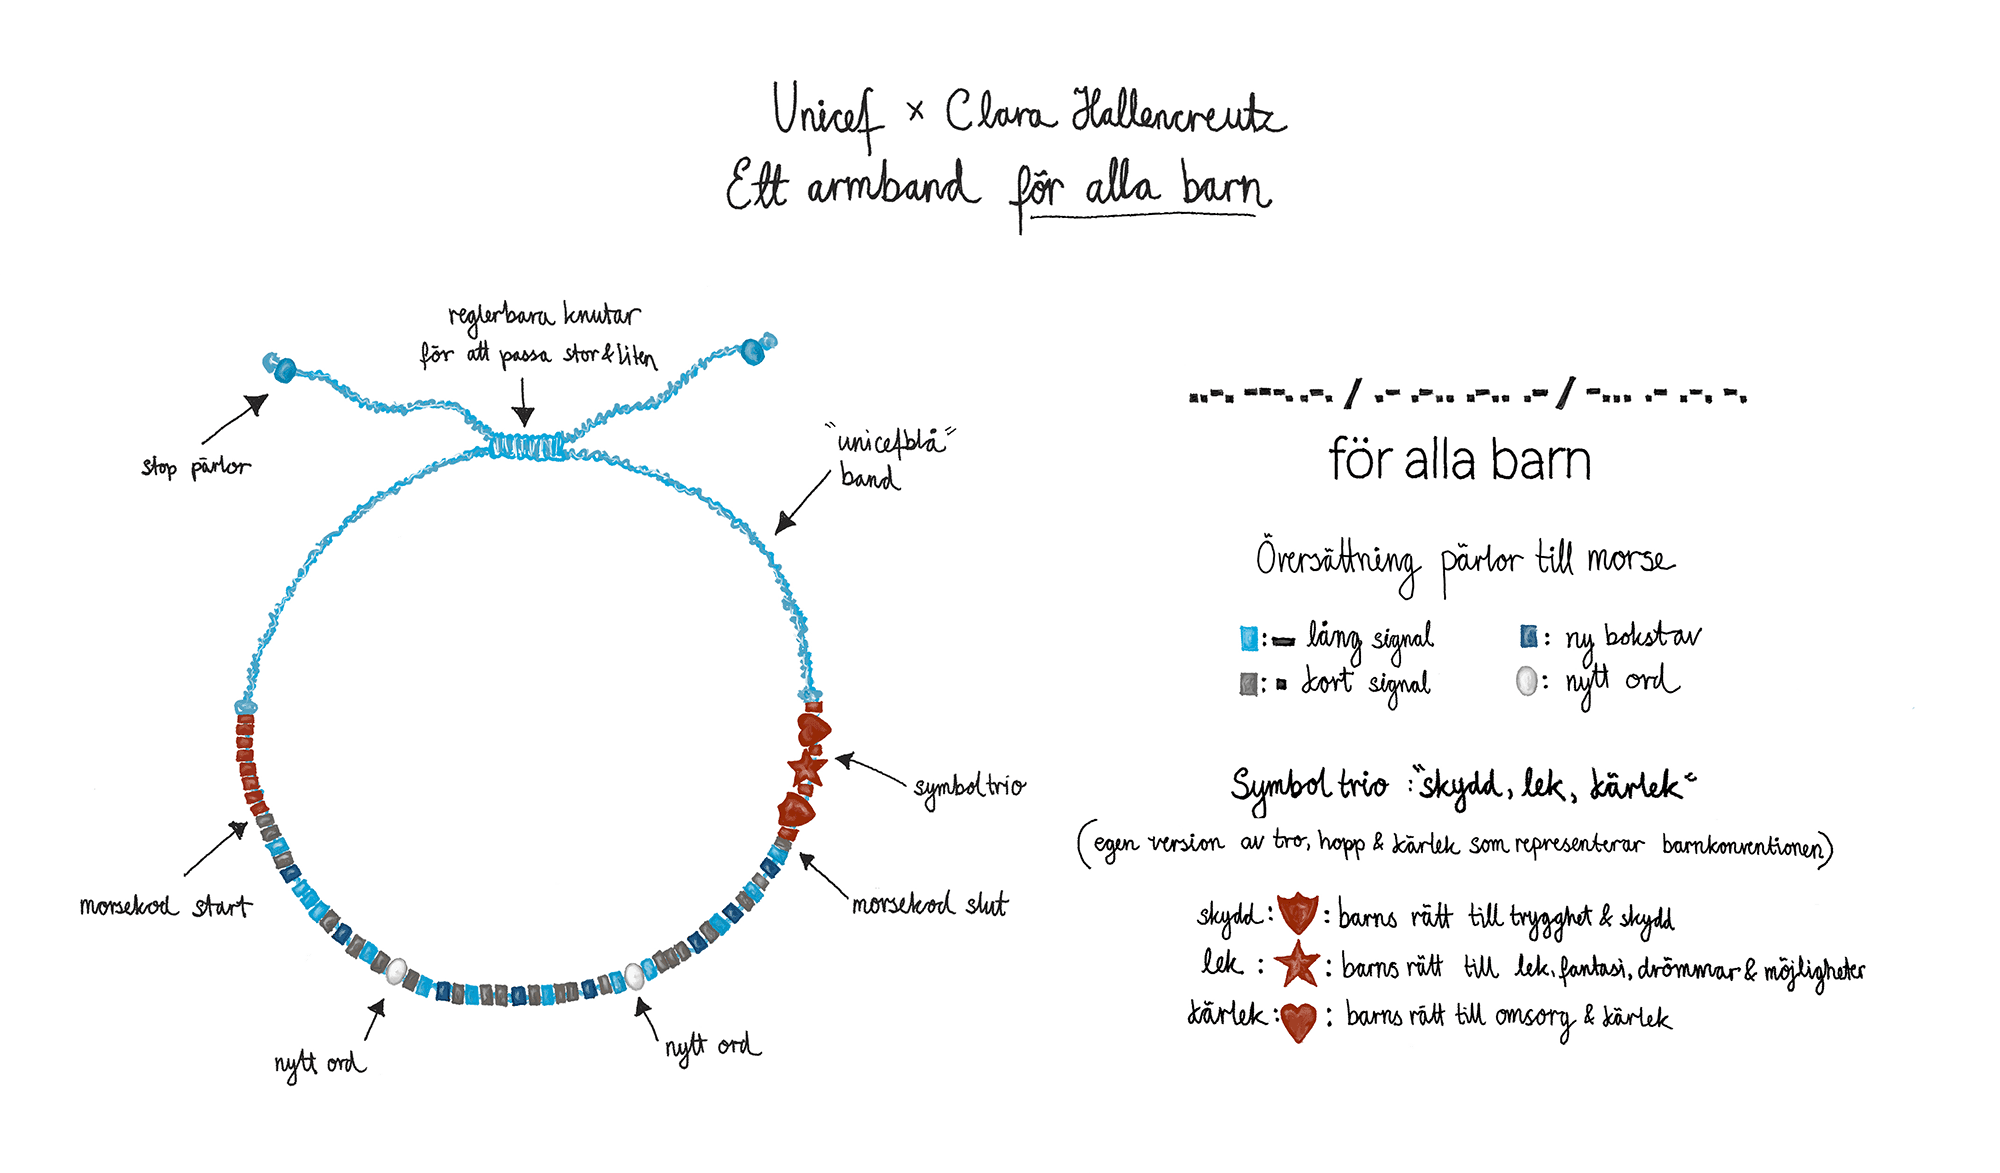 Unicef × Clara Hallencreutz
Ett armband för alla barn
reglerbara knutar
för att passa stor & liten
stop pärlor
"unicefblå"
band
symboltrio
morsekod start
morsekod slut
nytt ord
nytt ord
..-. ---. .-. / .- .-.. .-.. .- / -... .- .-. -.
för alla barn
Översättning pärlor till morse
: - lång signal
: ny bokstav
: . kort signal
: nytt ord
Symbol trio : "skydd, lek, kärlek"
(egen version av tro, hopp & kärlek som representerar barnkonventionen)
skydd : : barns rätt till trygghet & skydd
lek : : barns rätt till lek, fantasi, drömmar & möjligheter
kärlek : : barns rätt till omsorg & kärlek